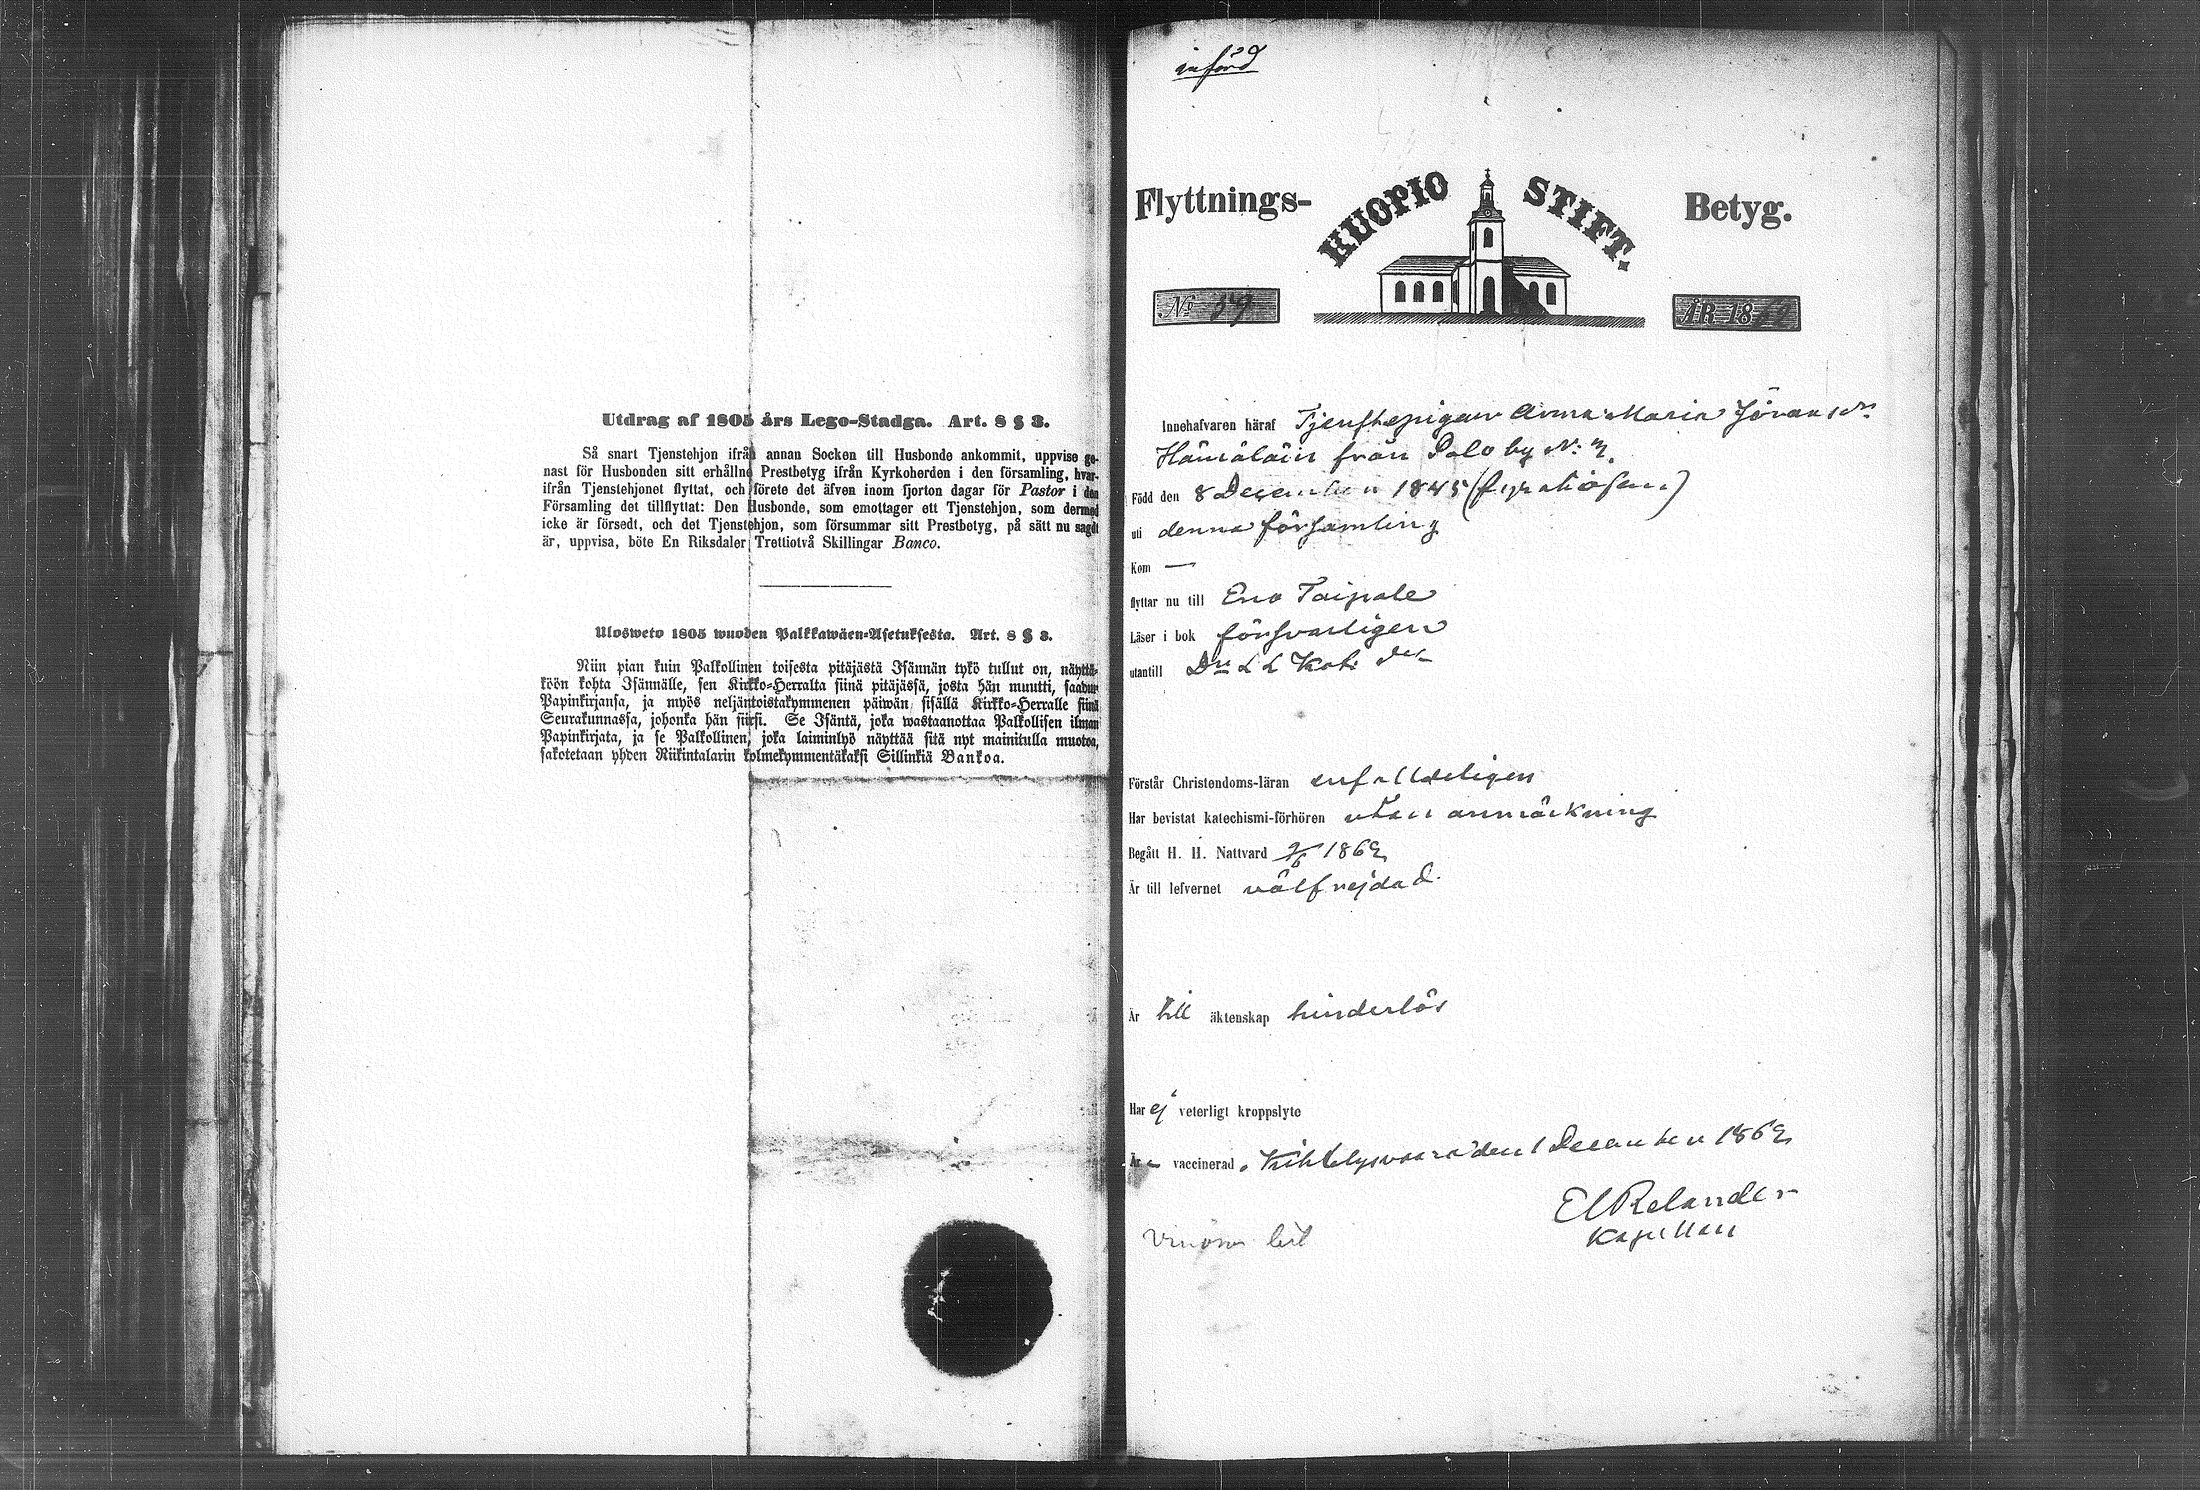 Utdrag af 1805 års Lego-Stadga. Art. 8 § 3.
Så snart Tjenstehjon ifrån annan Socken till Husbonde ankommit, uppvise ge-
nast för Husbonden sitt erhållne Prestbetyg ifrån Kyrkoherden i den församling, hvar-
ifrån Tjenstehjonet flyttat, och förete det äfven inom fjorton dagar för Pastor i den
Församling det tillflyttat: Den Husbonde, som emottager ett Tjenstehjon, som dermed
icke är försedt, och det Tjenstehjon, som försummar sitt Prestbetyg, på sätt nu sagdt
är, uppvisa, böte En Riksdaler Trettiotvå Skillingar Banco.
Ulosweto 1805 wuoden Palkkawäen-Asetuksesta. Art. 8 § 3.
Niin pian kuin Palkollinen toisesta pitäjästä Isännän tykö tullut on, näyttä-
köön kohta Isännälle, sen Kirkko-Herralta siinä pitäjässä, josta hän muutti, saadun
Papinkirjansa, ja myös neljäntoistakymmenen päiwän sisällä Kirkko-Herralle siinä
Seurakunnassa, johonka hän siirsi. Se Isäntä, joka wastaanottaa Palkollisen ilman
Papinkirjata, ja se Palkollinen, joka laiminlyö näyttää sitä nyt mainitulla muotoa,
sakotetaan yhden Riikintalarin kolmekymmentäkaksi Sillinkiä Bankoa.
införd
Flyttnings- KUOPIO STIFT. Betyg.
No 89 ÅR 1862
Innehafvaren häraf Tjenstepigan Anna Maria Göransdr
Hämäläin från Palo by N:
Född den 8 December 1845 (fyratiofem)
uti denna församling
Kom —
flyttar nu till Eno Taipale
Läser i bok försvarligen
utantill
Förstår Christendoms-läran enfalldeligen
Har bevistat katechismi-förhören utan anmärkning
Begått H. H. Nattvard 1862
Är till lefvernet välfrejdad.
Är till äktenskap hinderlös
Har ej veterligt kroppslyte
Är vaccinerad. Kihtelysvaara den 1 December 1862
Relander
Kapellan